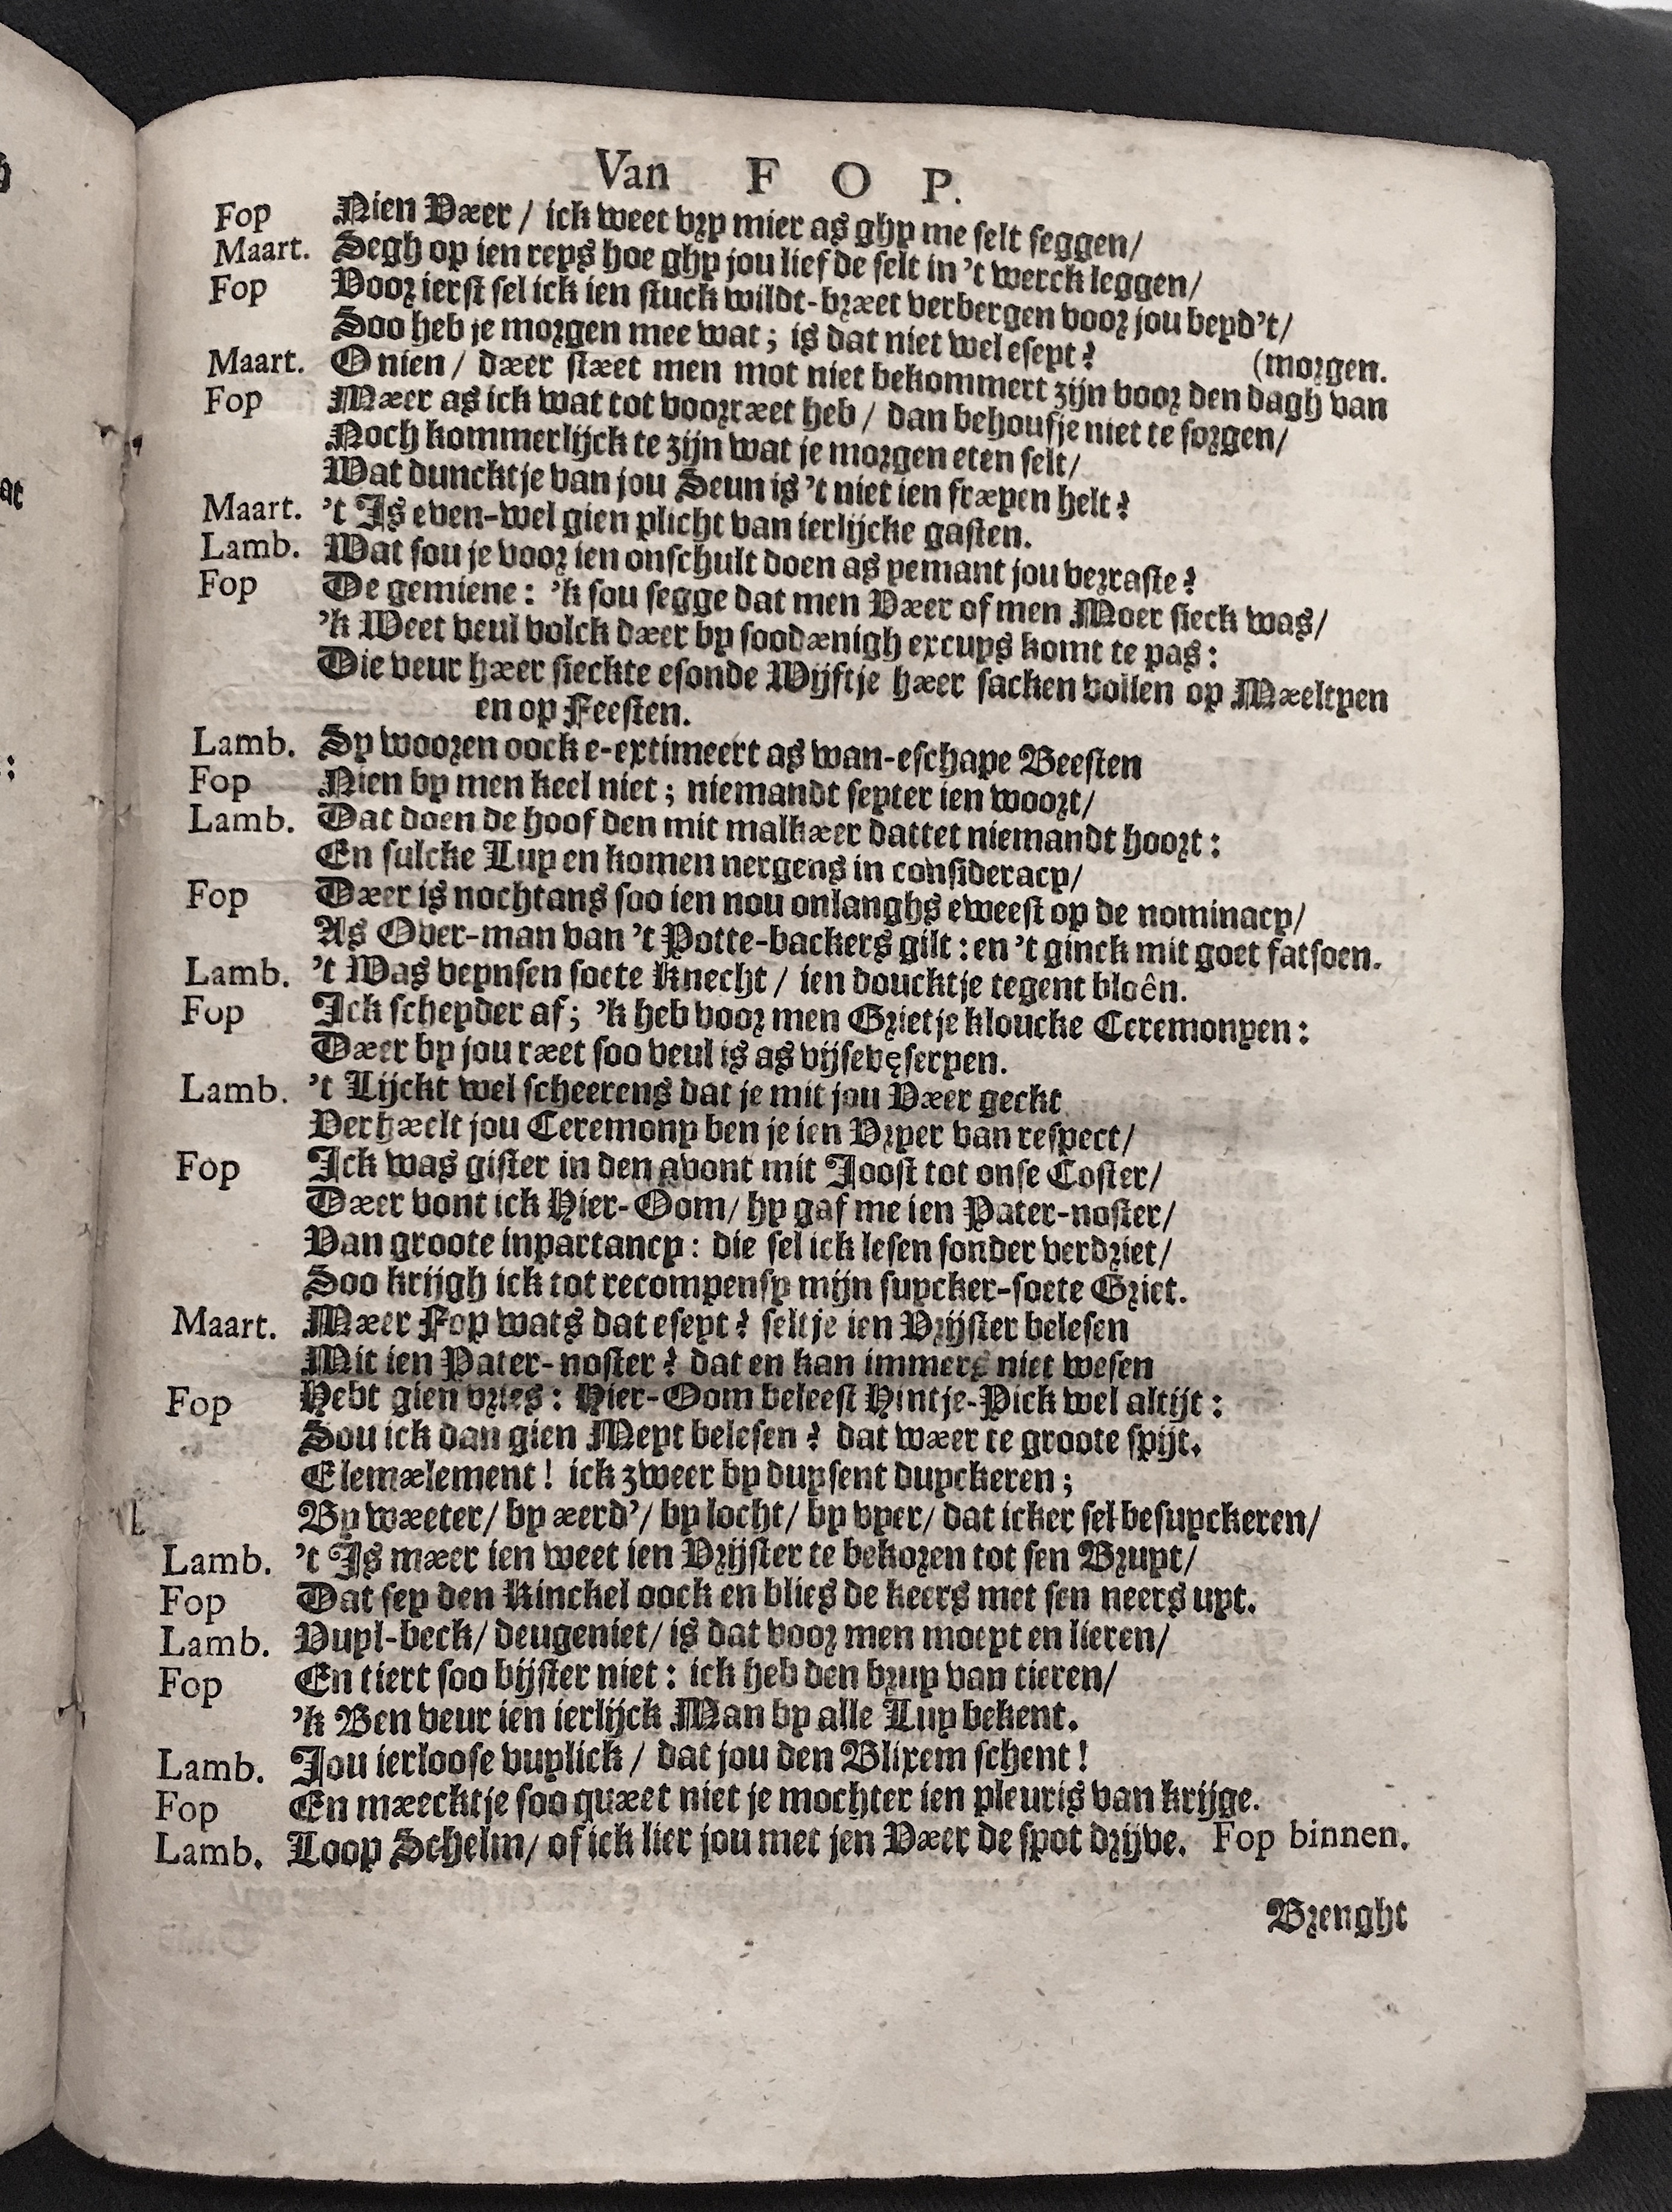 Van F O P.
Fop Nien Væer / ick weet vry mier as ghy me selt seggen/
Maart. Segh op ien reys hoe ghy jou liefde selt in 't werck leggen/
Fop Voor ierst sel ick ien stuck wildt-bræet verbergen voor jou beyd't/
Soo heb je morgen mee wat; is dat niet wel eseyt?
(morgen.
Maart. O nien / dæer stæet men mot niet bekommert zijn voor den dagh van
Fop Mæer as ick wat tot voorræet heb / dan behoufje niet te sorgen/
Noch kommerlijck te zijn wat je morgen eten selt/
Wat duncktje van jou Seun is 't niet ien fræyen helt?
Maart. 't Is even-wel gien plicht van ierlijcke gasten.
Lamb. Wat sou je voor ien onschult doen as yemant jou verraste?
Fop De gemiene: 'k sou segge dat men Væer of men Moer sieck was/
'k Weet veul volck dæer by soodænigh excuys komt te pas:
Die veur hæer sieckte esonde Wijftje hæer sacken vollen op Mæeltyen
en op Feesten.
Lamb. Sy wooren oock e-extimeert as wan-eschape Beesten
Fop Nien by men keel niet; niemandt seyter ien woort/
Lamb. Dat doen de hoofden mit malkæer dattet niemandt hoort:
En sulcke Luy en komen nergens in consideracy/
Fop Dæer is nochtans soo ien nou onlanghs eweest op de nominacy/
As Over-man van 't Potte-backers gilt: en 't ginck mit goet fatsoen.
Lamb. 't Was veynsen soete Knecht / ien doucktje tegent bloên.
Fop Ick scheyder af; 'k heb voor men Grietje kloucke Ceremonyen:
Dæer by jou ræet soo veul is as vijsevęseryen.
Lamb. 't Lijckt wel scheerens dat je mit jou Væer geckt
Verhæelt jou Ceremony ben je ien Vryer van respect/
Fop Ick was gister in den avont mit Joost tot onse Coster/
Dæer vont ick Hier-Oom/ hy gaf me ien Pater-noster/
Van groote inpartancy: die sel ick lesen sonder verdriet/
Soo krijgh ick tot recompensy mijn suycker-soete Griet.
Maart. Mæer Fop wats dat eseyt? seltje ien Vrijster belesen
Mit ien Pater-noster? dat en kan immers niet wesen
Fop Hebt gien vries: Hier-Oom beleest Hintje-Pick wel altijt:
Sou ick dan gien Meyt belesen? dat wæer te groote spijt.
Elemælement! ick zweer by duysent duyckeren;
By wæeter/ by æerd'/ by locht/ by vyer/ dat icker sel besuyckeren/
Lamb. 't Is mæer ien weet ien Vrijster te bekoren tot sen Bruyt/
Fop Dat sey den Kinckel oock en blies de keers met sen neers uyt.
Lamb. Vuyl-beck/ deugeniet/ is dat voor men moeyt en lieren/
Fop En tiert soo bijster niet: ick heb den bruy van tieren/
'k Ben veur ien ierlijck Man by alle Luy bekent.
Lamb. Jou ierloose vuylick / dat jou den Blixem schent!
Fop En mæecktje soo quæet niet je mochter ien pleuris van krijge.
Lamb. Loop Schelm/ of ick lier jou met jen Væer de spot drijve. Fop binnen.
Brenght